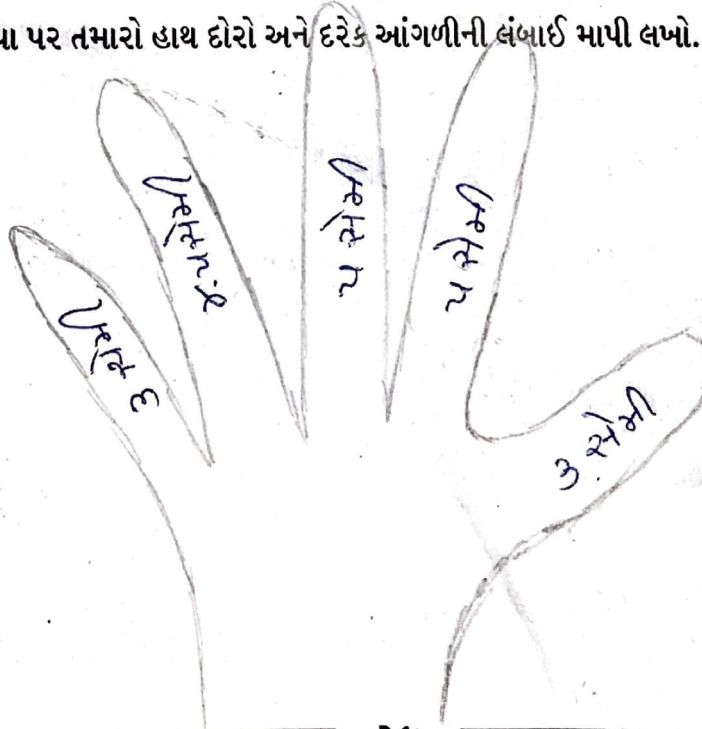 પર તમારો હાથ દોરો અને દરેક આંગળીની લંબાઈ માપી લખો.
૩ સેમી
૪.૫ સેમી
૫ સેમી
૫ સેમી
૩ સેમી